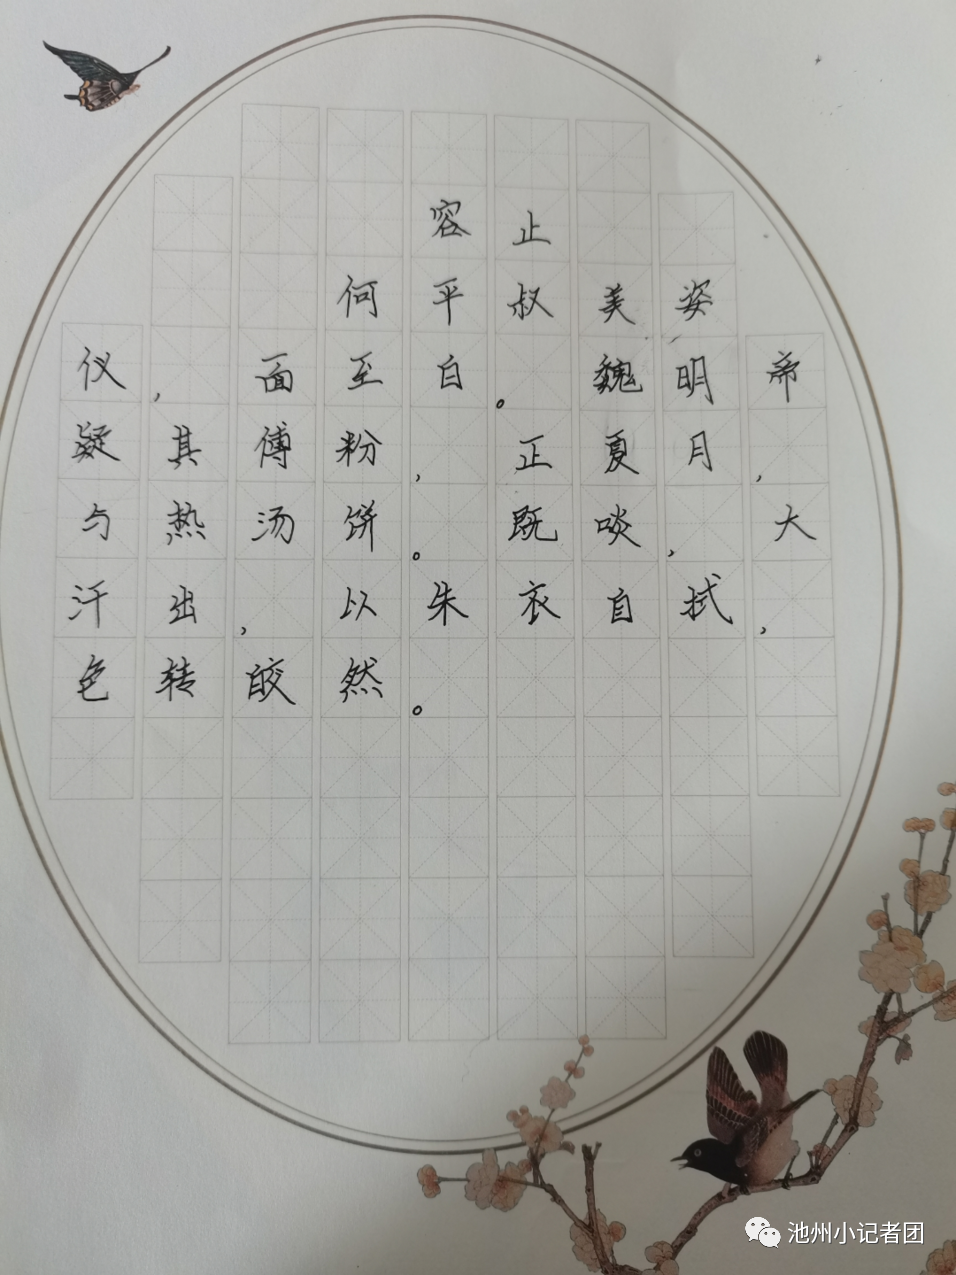 容止
何平叔美姿
仪，面至白。魏明帝
疑其傅粉，正夏月，
与热汤饼。既啖，大
汗出，以朱衣自拭，
色转皎然。
池州小记者团